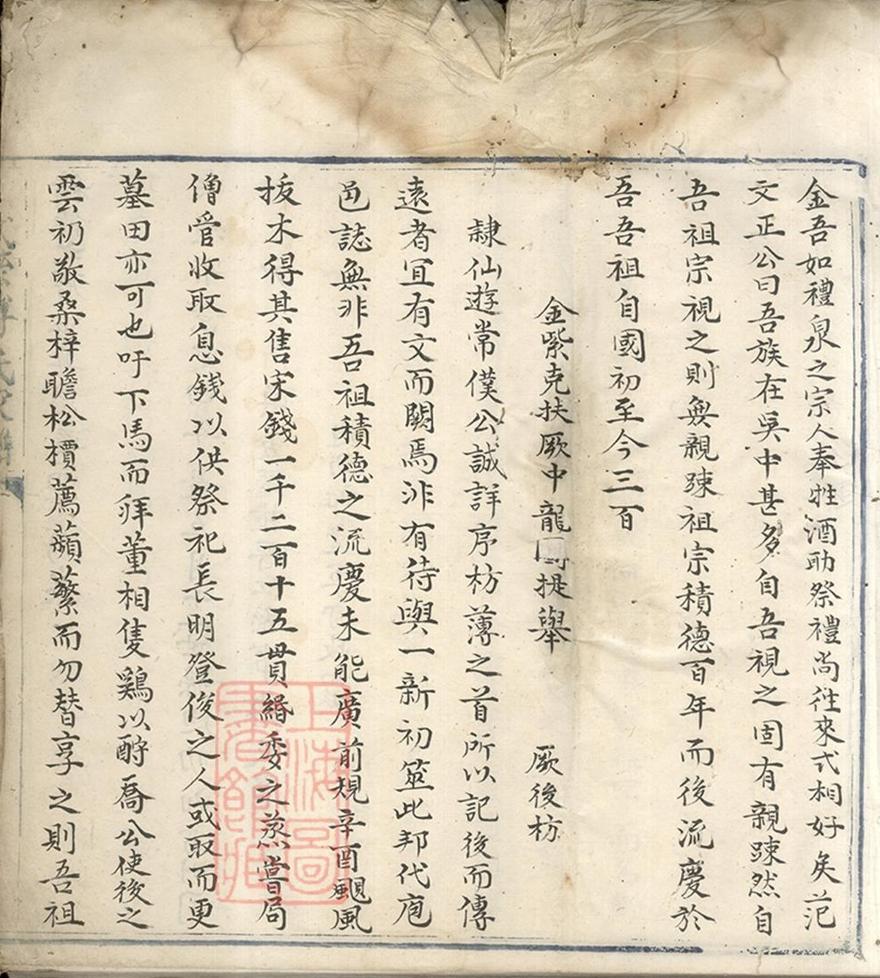 金吾如禮泉之宗人奉牲酒助祭禮尚徃來式相好矣范
文正公曰吾族在吳中甚多自吾視之固有親踈然自
吾祖宗視之則無親踈祖宗積德百年而後流慶於
吾吾祖自國初至今三百
金紫克扶厥中龍圖提舉 厥後枋
隸仙遊常僕公誠詳序枋薄之首所以記後而傳
遠者宜有文而闕焉非有待與一新初筮此邦代庖
邑誌無非吾祖積德之流慶未能廣前規辛酉颶風
拔木得其售宋錢一千二百十五貫緡委之蒸嘗局
僧管收取息錢以供祭祀長明登俊之人或取而更
墓田亦可也吁下馬而拜董相隻鷄以酹喬公使後之
雲礽敬桑梓瞻松檟薦蘋蘩而勿替享之則吾祖
上海圖書館藏